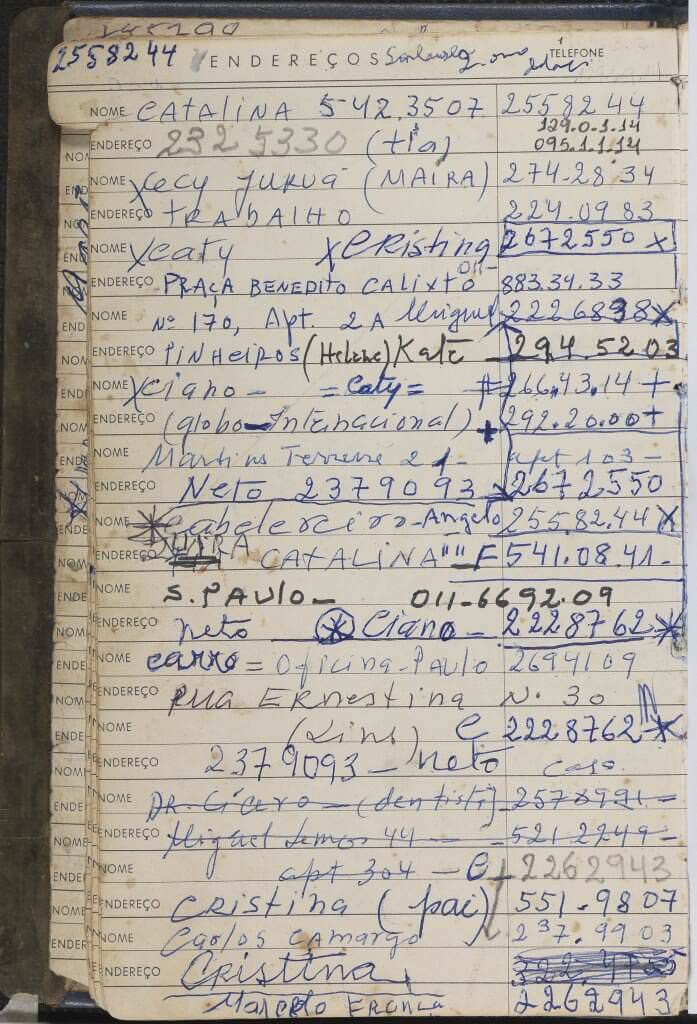 2558244 ENDEREÇOS TELEFONE
NOME CATALINA 542.3507 2558244
ENDEREÇO 232 5330 (tia) 129.0.1.14
095.1.1.14
NOME XCecy JURUÁ (MAIRA) 274-28.34
ENDEREÇO TRABALHO 224.09 83
NOME XCaty XCRISTINA 2672550 X
ENDEREÇO PRAÇA BENEDITO CALIXTO 011- 883.34.33
NOME Nº 170, Apt. 2A Miguel 2226898X
ENDEREÇO PINHEIROS (Helene) Kate 294.52.03
NOME XCiano - = Caty = 266.43.14 +
ENDEREÇO (globo-Internacional) + 292.20.00+
NOME Martins Ferreira 21- apt 103-
ENDEREÇO Neto 2379093 2672550
NOME Cabelereiro-Angelo 25582.44 X
ENDEREÇO CATALINA"" 541.08.41-
NOME S. PAULO- 011-6692.09
ENDEREÇO neto Ciano- 2228762
NOME carro = Oficina-Paulo 2694109
ENDEREÇO RUA Ernestina N. 30
NOME (Lins) e 2228762
ENDEREÇO 2379093 - neto casa
NOME DR. Cícero - (dentista) 2578991-
ENDEREÇO Miguel Lemos 44 - 521 2249-
NOME apt 304 - C 2262943
ENDEREÇO CRISTINA (pai) 551-9807
NOME Carlos Camargo 237.9903
ENDEREÇO CRISTINA
Marcelo França 2262943